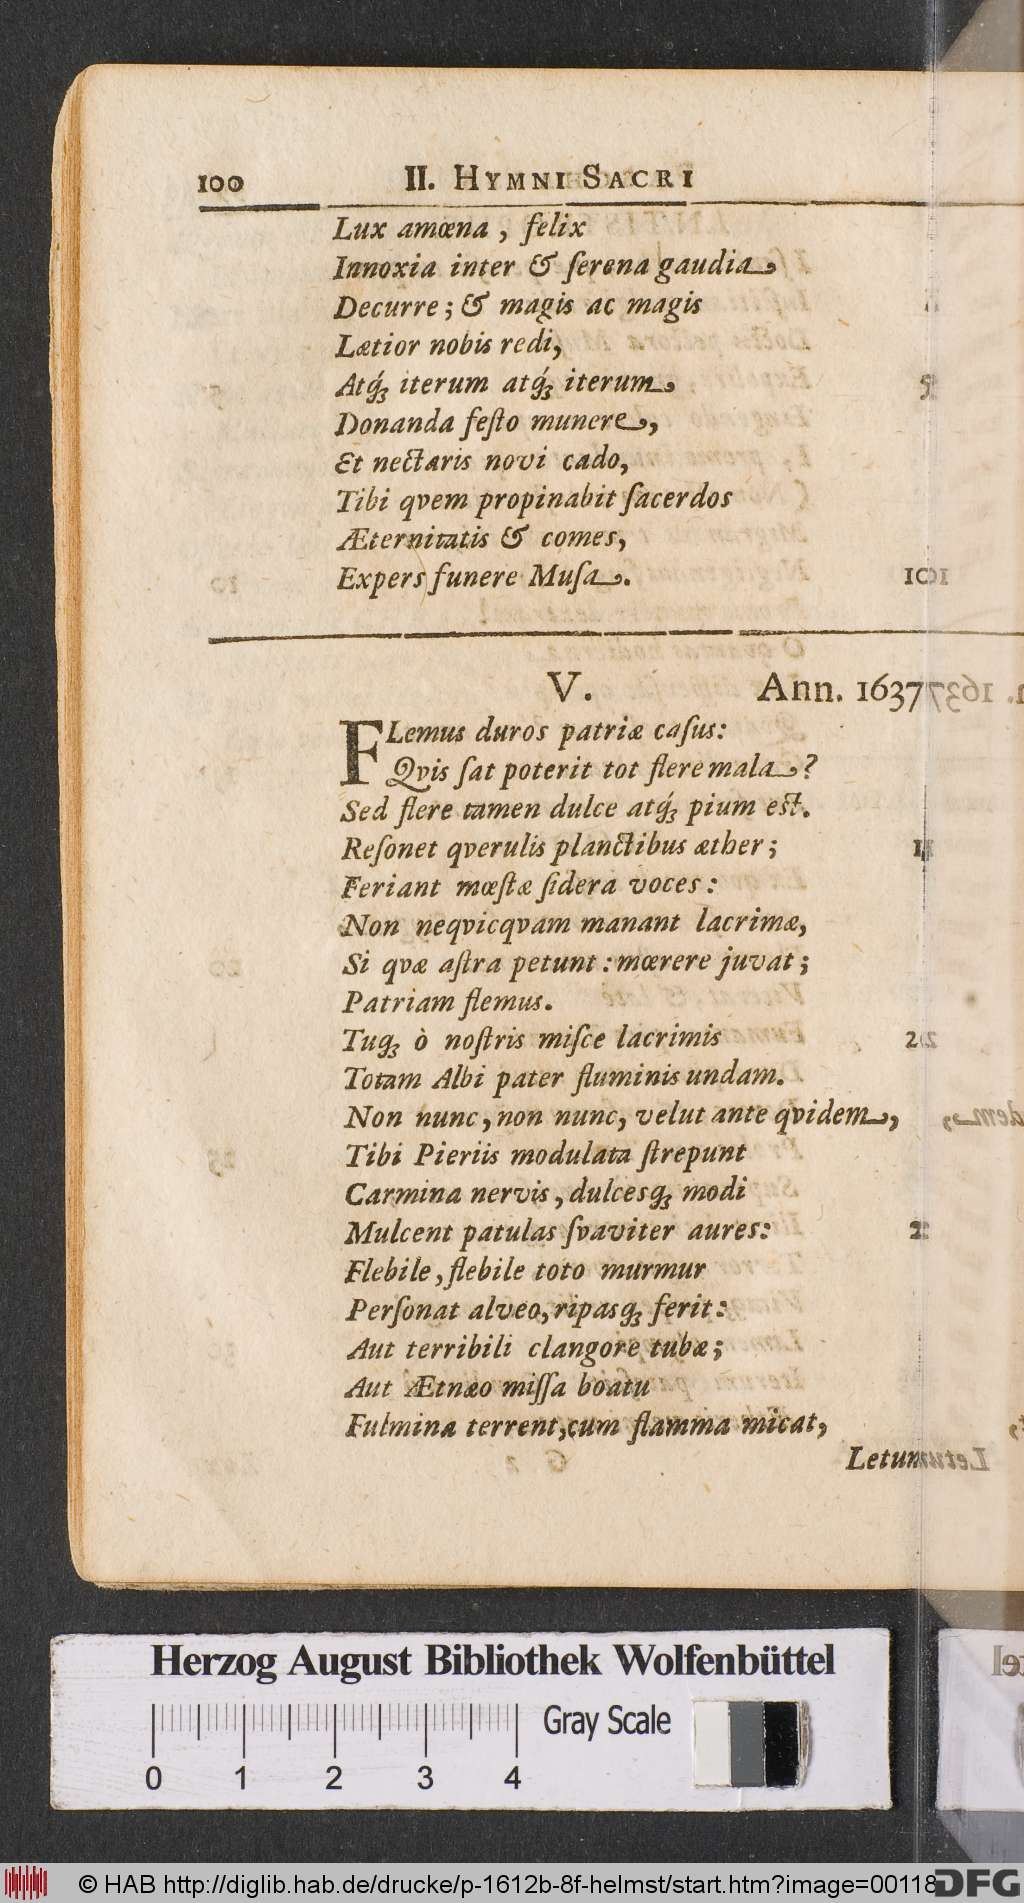 100 II. HYMNI SACRI
Lux amœna, felix
Innoxia inter & ſerena gaudia,
Decurre; & magis ac magis
Lætior nobis redi,
Atq́ꝫ iterum atq́ꝫ iterum,
Donanda feſto munere,
Et nectaris novi cado,
Tibi qvem propinabit ſacerdos
Æternitatis & comes,
Expers funere Muſa.
101
V. Ann. 1637
FLemus duros patriæ caſus:
Qvis ſat poterit tot flere mala?
Sed flere tamen dulce atq́ꝫ pium est.
Reſonet qverulis planctibus æther;
Feriant mœſtæ ſidera voces:
Non neqvicqvam manant lacrimæ,
Si qvæ aſtra petunt: mœrere juvat;
Patriam flemus.
Tuqꝫ ò noſtris miſce lacrimis
Totam Albi pater fluminis undam.
Non nunc, non nunc, velut ante qvidem,
Tibi Pieriis modulata ſtrepunt
Carmina nervis, dulcesqꝫ modi
Mulcent patulas ſvaviter aures:
Flebile, flebile toto murmur
Perſonat alveo, ripasqꝫ ferit:
Aut terribili clangore tubæ;
Aut Ætnæo miſſa boatu
Fulmina terrent, cum flamma micat,
Letum
Herzog August Bibliothek Wolfenbüttel
Gray Scale
0 1 2 3 4
© HAB http://diglib.hab.de/drucke/p-1612b-8f-helmst/start.htm?image=00118
DFG